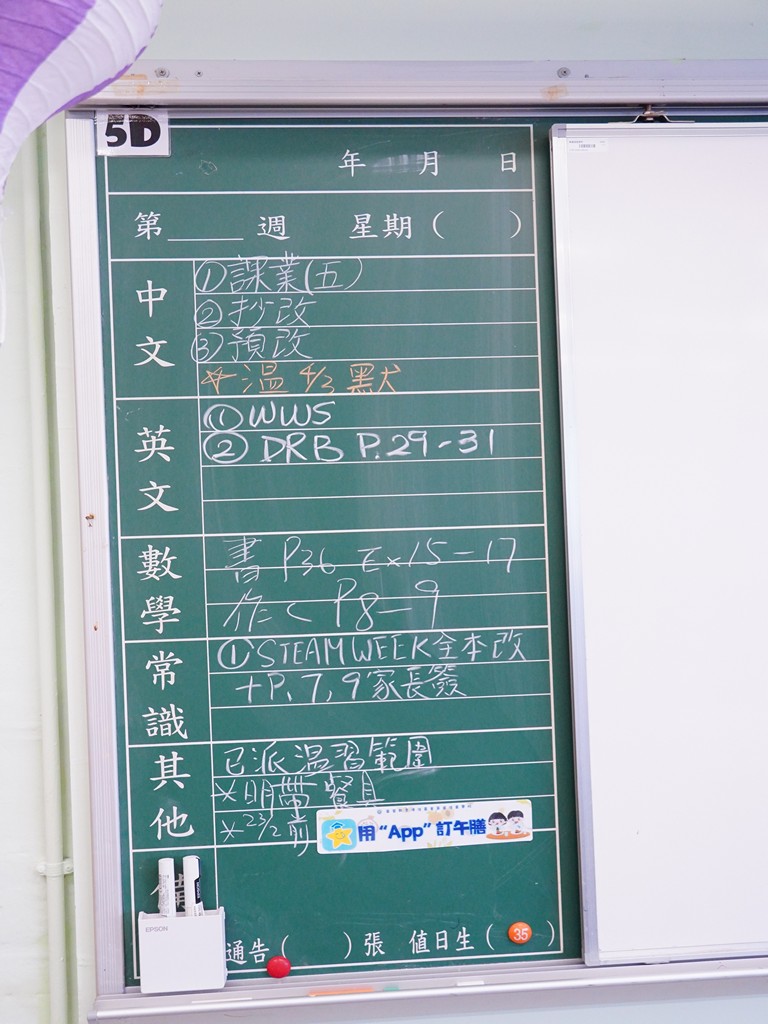 5D
年 月 日
第____週 星期( )
中文
①課業(五)
②抄改
③預改
☆溫 4/3 默
英文
① WWS
② DRB P.29-31
數學
書 P36 Ex15-17
作 C P8-9
常識
① STEAM WEEK全本改
+P.7,9家長簽
其他
已派溫習範圍
*明帶餐具
*23/2前
用“App”訂午膳
EPSON
通告( )張 值日生( 35 )